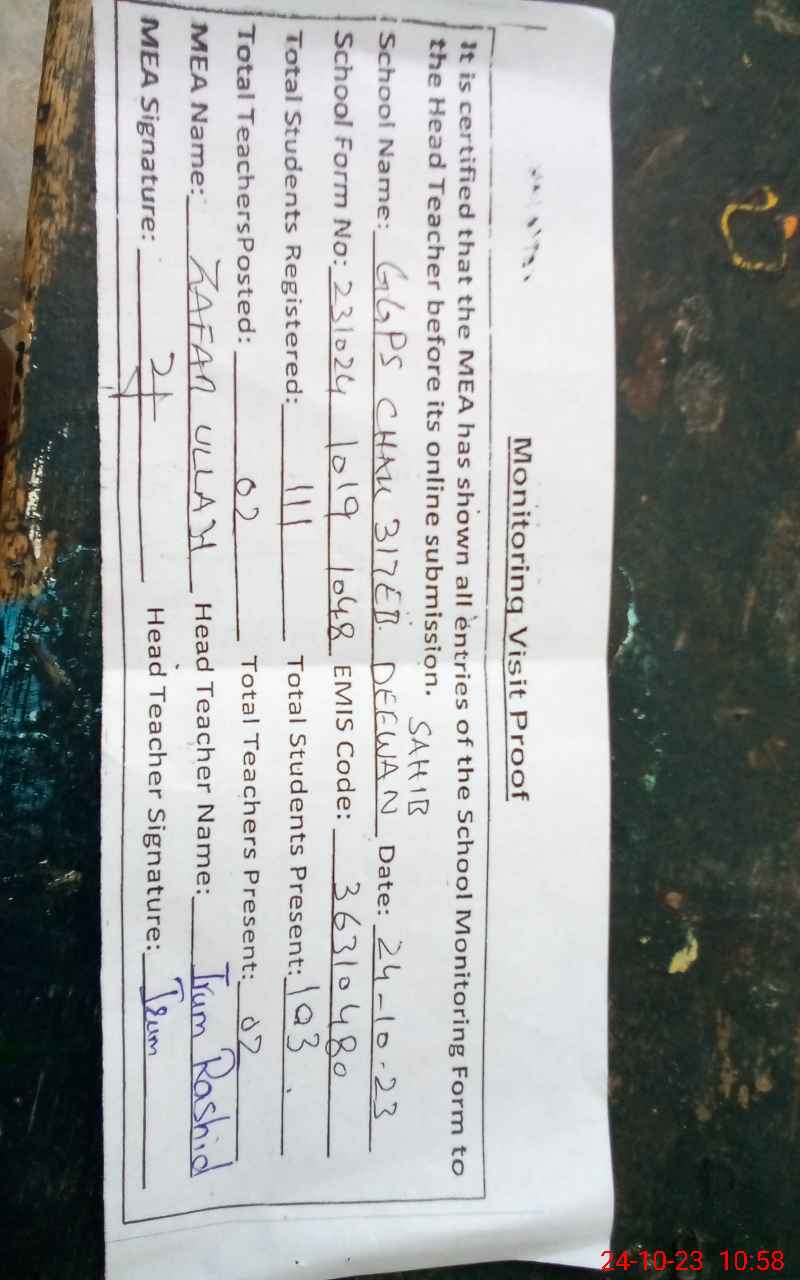 Monitoring Visit Proof
It is certified that the MEA has shown all entries of the School Monitoring Form to
the Head Teacher before its online submission.
SAHIB
School Name: GGPS CHAK 317EB DEEWAN Date: 24-10-23
School Form No: 231024 1019 1048 EMIS Code: 36310480
Total Students Registered: 111 Total Students Present: 103
Total TeachersPosted: 02 Total Teachers Present: 02
MEA Name: ZAFAR ULLAH Head Teacher Name: Irum Rashid
MEA Signature: Head Teacher Signature: Irum
24-10-23 10:58